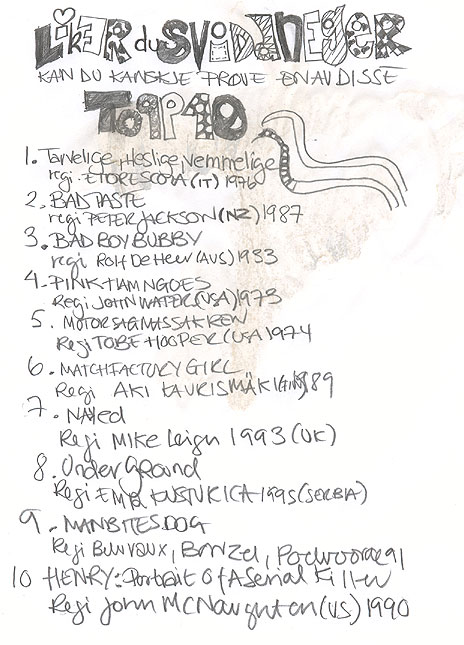 LikER du SViDdNEgER
KAN DU KANSKJE PRØVE EN AV DISSE
TOPP 10
1. Tarvelige, Heslige, Nemmelige
regi. ETORE SCOLA (IT) 1976
2. BAD TASTE
regi PETER JACKSON (NZ) 1987
3. BAD BOY BUBBY
regi Rolf De Heer (AUS) 1933
4. PINK FLAMNGOES
Regi JOHN WATER (USA) 1973
5. MOTORSAGMASSAKREN
Regi TOBE HOOPER (USA 1974
6. MATCHFACTORY GIRL
Regi AKI KAURISMÄKI (FIN) 89
7. NAKed
Regi MIKE Leign 1993 (UK)
8. UnderGRound
Regi EMIR KUSTURICA 1995 (SERBIA)
9. MANBITESDOG
Regi Bonzel, 91
10 HENRY: Portrait Of A Serial Killer
Regi John MCNaughton (US) 1990